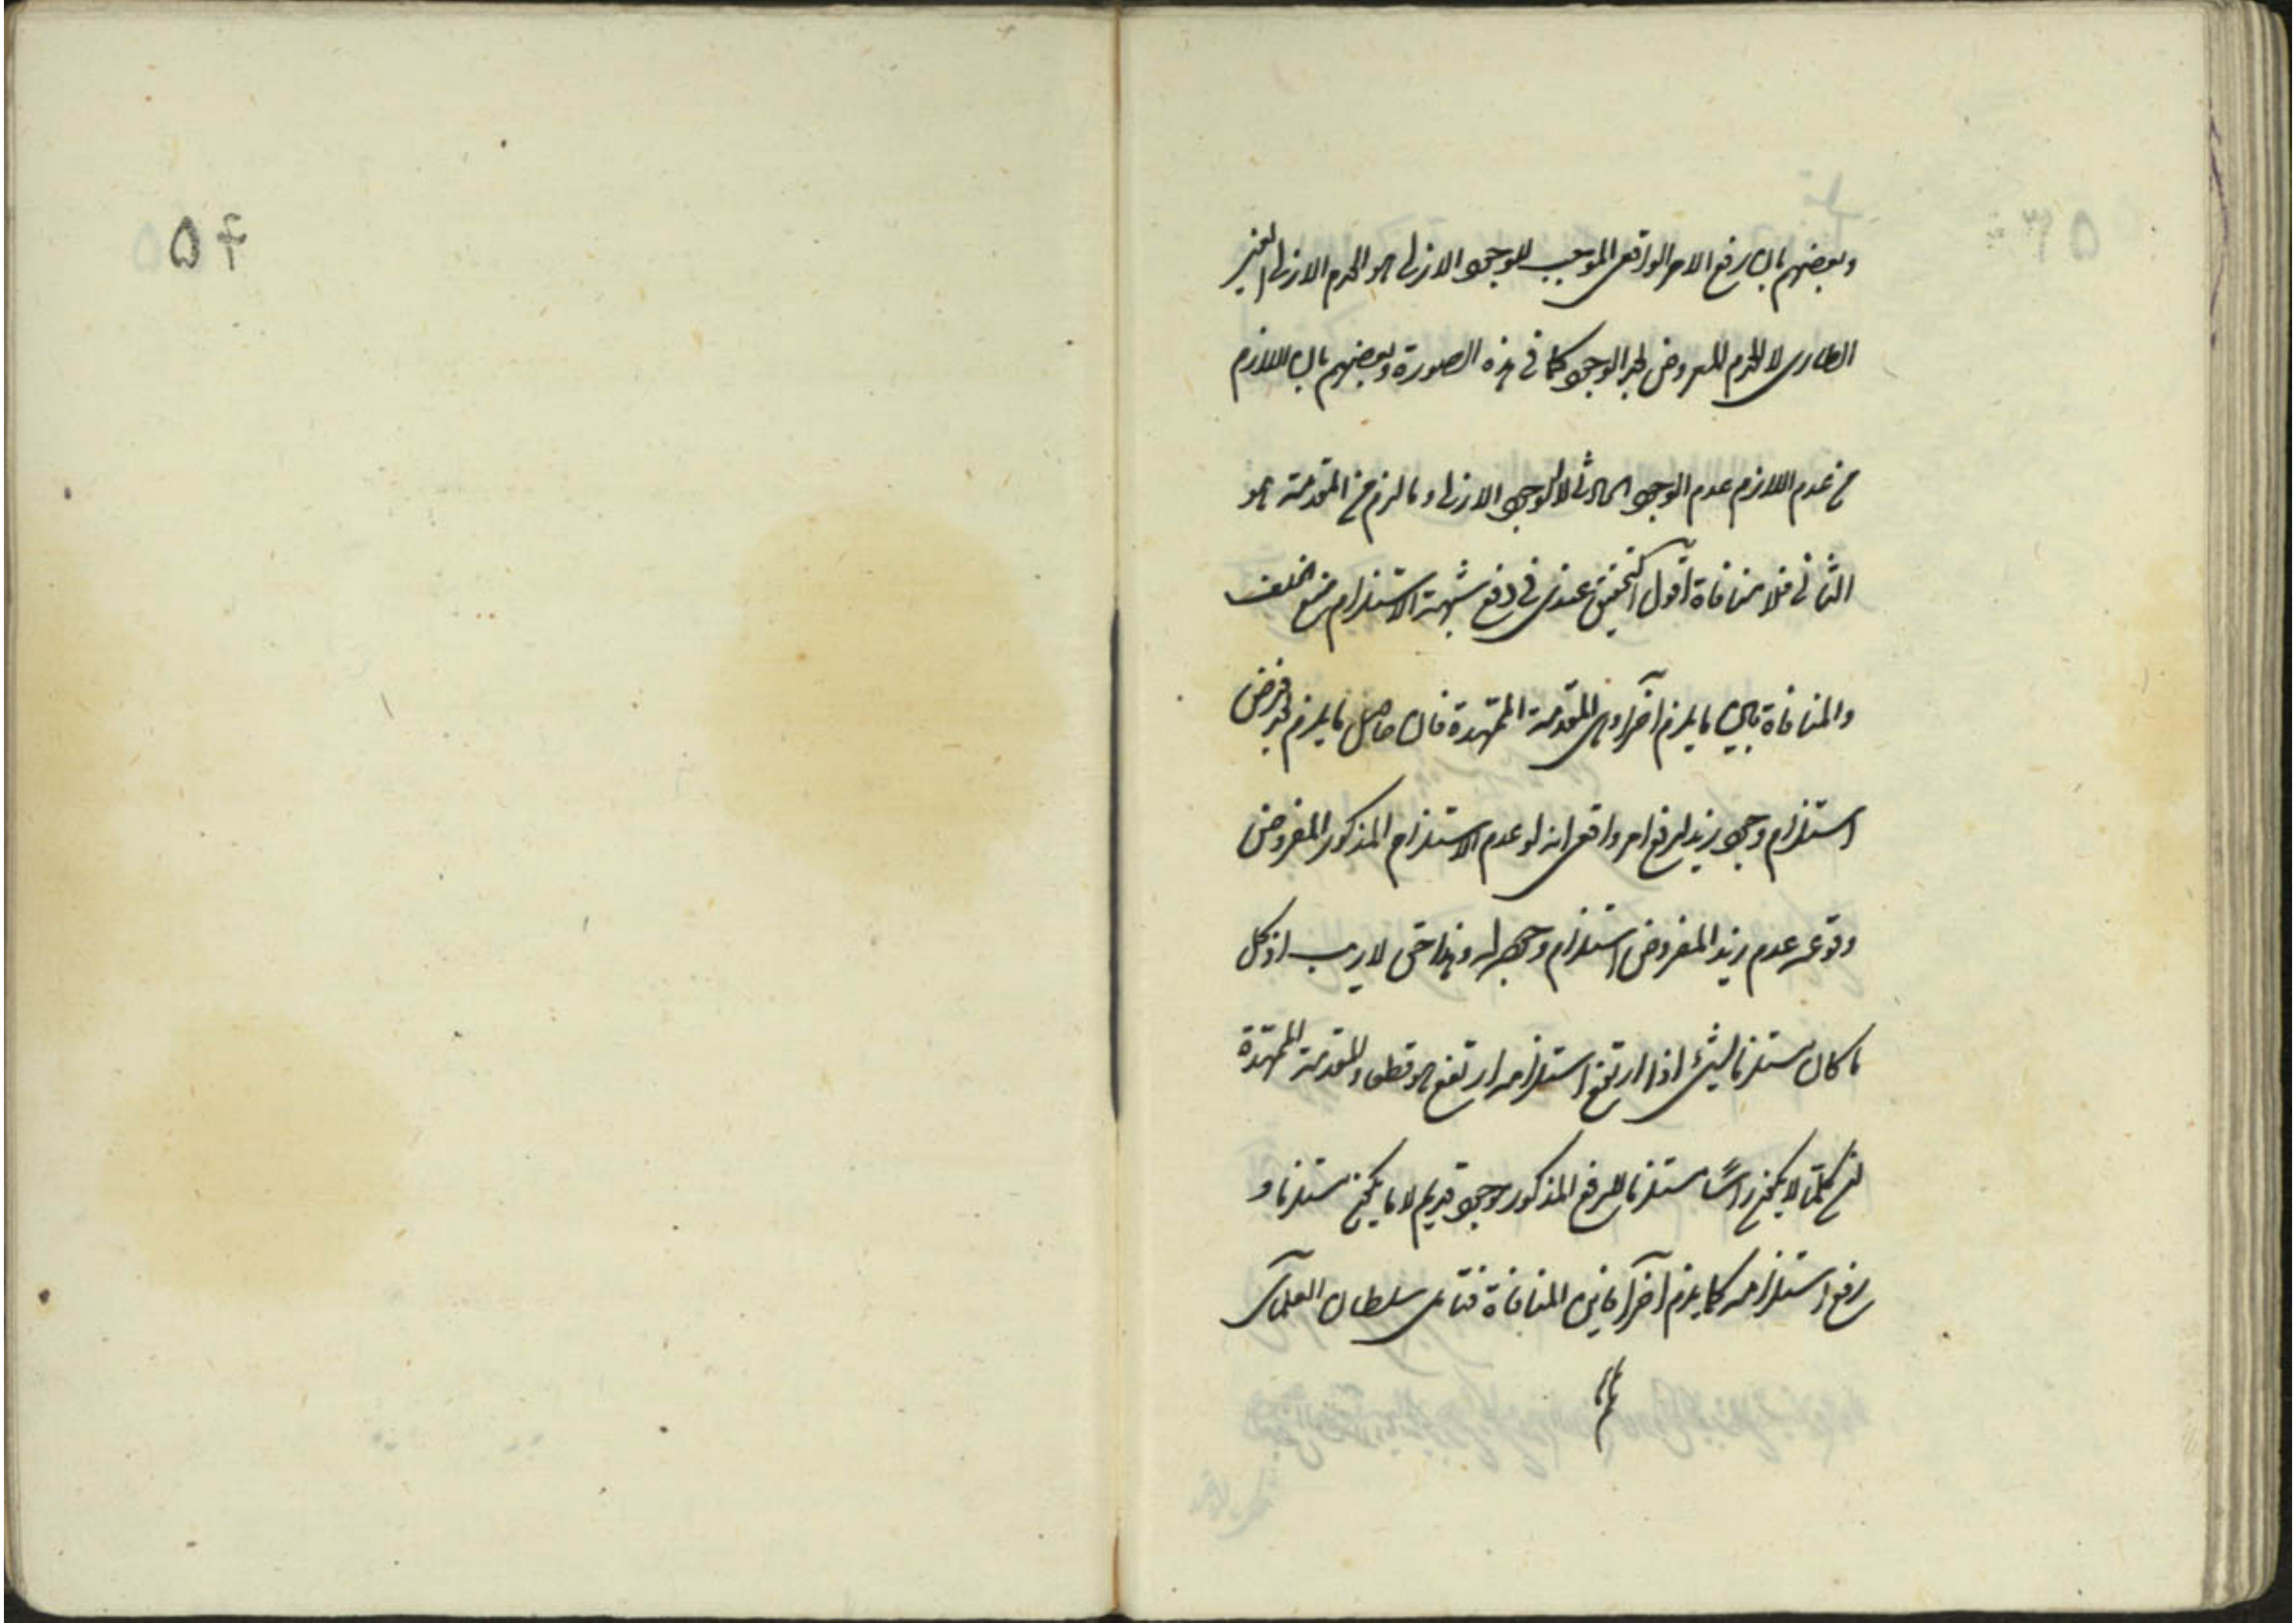 وبعضهم بان رفع الامر الواقعى الموجب للوجود الازلى هو العدم الازلى الغير
الطارى لا العدم المعروض لهذا الوجود كما فى هذه الصورة وبعضهم بان اللازم
من عدم اللازم عدم الوجود الحادث لا الوجود الازلى وما لزم من المقدمة هو
الثانى فلا منافاة اقول التحقيق عندى فى دفع شبهة الاستلزام منع الخلف
والمنافاة بين ما يلزم آخرا وبين المقدمة الممهدة فان حاصل ما يلزم فرض
استلزام وجود زيد لرفع امر واقعى انه لو عدم الاستلزام المذكور المفروض
وقوعه عدم زيد المفروض استلزام وجوده له وهذا حق لا ريب اذ كل
ما كان مستلزما لشئ اذا ارتفع استلزامه ارتفع هو قطعا والمقدمة الممهدة
كلما لا يكون راسًا مستلزما للرفع المذكور موجود قديم لا ما يكون مستلزما و
رفع استلزامه كما يلزم آخرا فاين المنافاة فتامل سلطان العلمآء